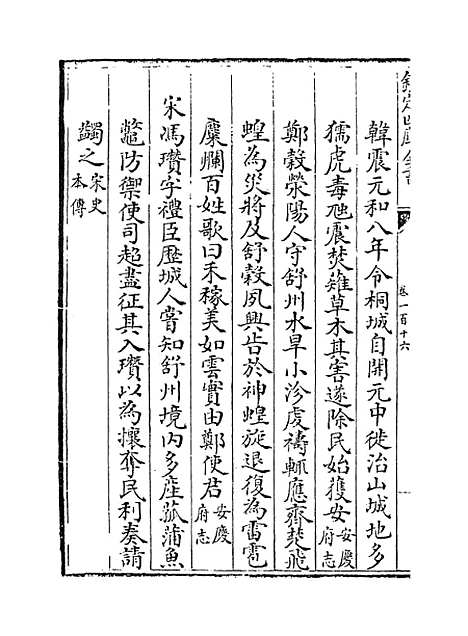 欽定四庫全書
卷一百十六
韓震元和八年令桐城自開元中徙治山城地多
猛虎毒虺震焚雉草木其害遂除民始獲安安慶府志
鄭縠滎陽人守舒州水旱小沴虔禱輒應齊楚飛
蝗為災將及舒縠夙興告於神蝗旋退復為雷雹
糜爛百姓歌曰禾稼美如雲實由鄭使君安慶府志
宋馮瓚字禮臣歴城人嘗知舒州境内多産菰蒲魚
鼈防禦使司超盡征其入瓚以為攘奪民利奏請
蠲之宋史本傳